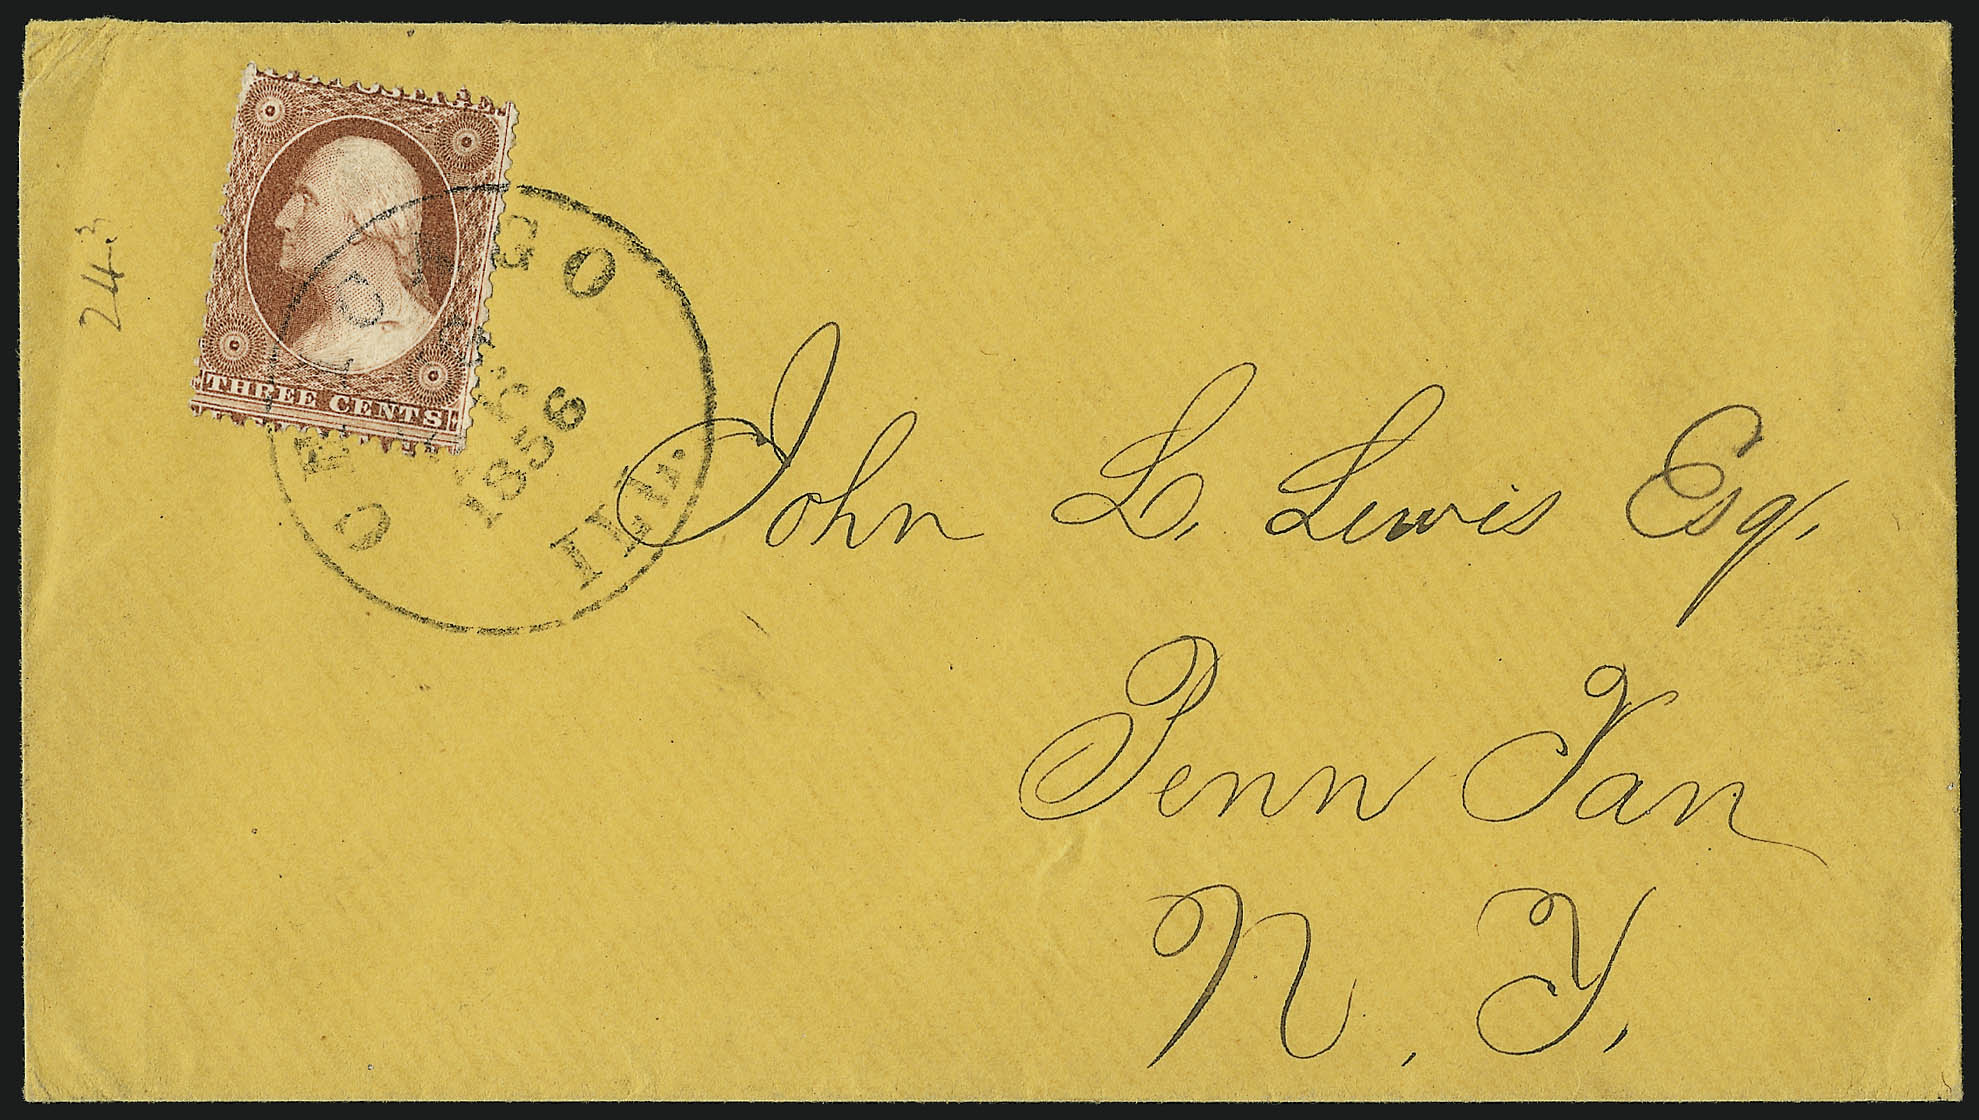 POSTAGE
THREE CENTS
CHICAGO
1856
ILL.
243
John L. Lewis Esq.
Penn Yan
N. Y.